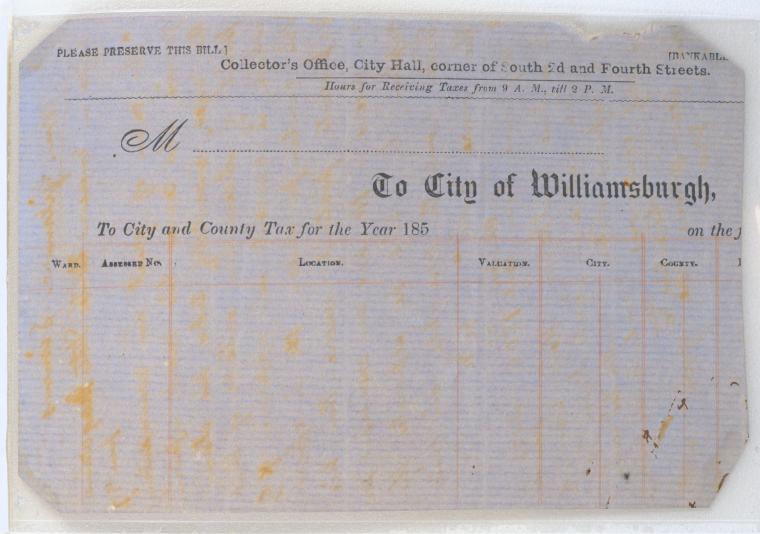 PLEASE PRESERVE THIS BILL]
[BANKABL
Collector's Office, City Hall, corner of South 2d and Fourth Streets.
Hours for Receiving Taxes from 9 A. M., till 2 P. M.
M
To City of Williamsburgh,
To City and County Tax for the Year 185
on the f
Ward. Assessed No. Location. Valuation. City. County.